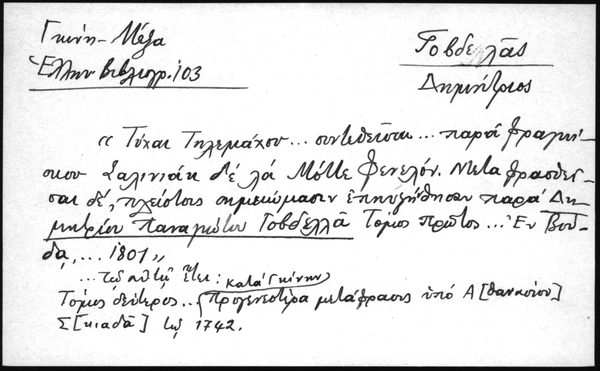 Γκίνη - Μέξα
Ἑλλην. Βιβλιογρ. 103
Γοβδελᾶς
Δημήτριος
« Τύχαι Τηλεμάχου ... συντεθεῖσαι ... παρά Φραγκί-
σκου Σαλινιάκ δέ λά Μόττε Φενελόν. Μεταφρασθεῖ-
σαι δέ, πλείστοις σημειώμασιν ἐπηυξήθησαν παρά Δη-
μητρίου Παναγιώτου Γοβδελᾶ Τόμος πρῶτος ... Ἐν Βού-
δα, ... 1801 »
... τῷ αὐτῷ ἔτει: κατά Γκίνην
Τόμος δεύτερος ... προγενεστέρα μετάφρασις ὑπό Α[θανασίου]
Σ[κιαδᾶ] τῷ 1742.